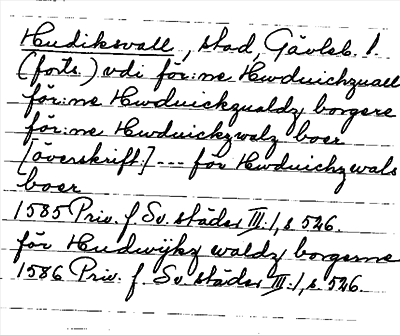 Hudiksvall, stad, Gävleb. l.
(forts.) vdi för:ne Hwduichzuall
för:ne Hwduickzualdz borgere
för:ne Hwduickzwalz boer
[överskrift:] --- för Hwduichzwals
boer
1585 Priv. f. Sv. städer III:1, s 526.
för Hudwijkz waldz borgerne
1586 Priv. f. Sv. städer III:1, s. 546.